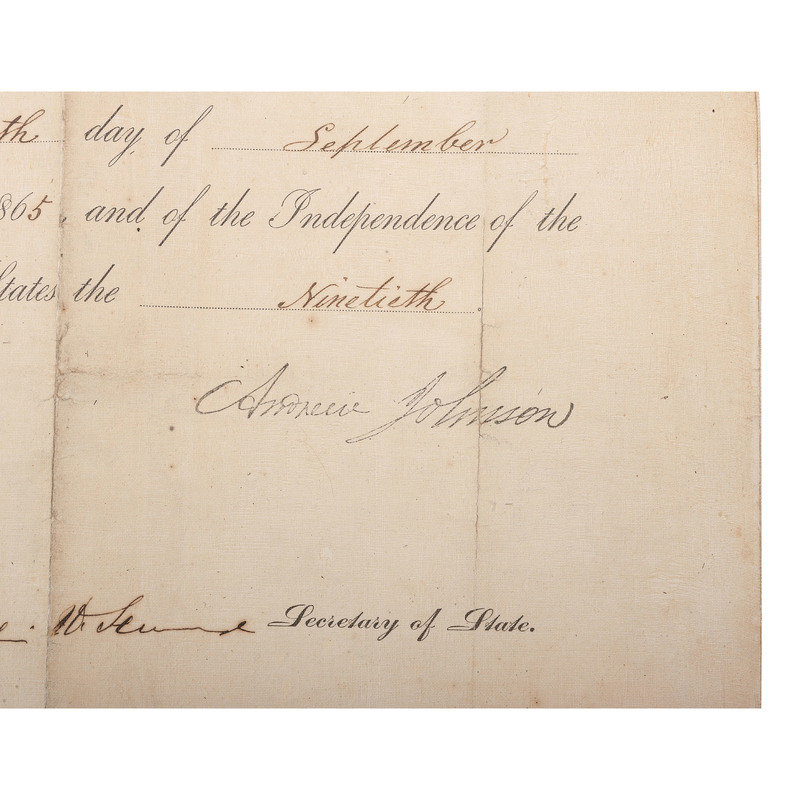 th day of September
865, and of the Independence of the
States the Ninetieth.
Andrew Johnson
W. Seward Secretary of State.